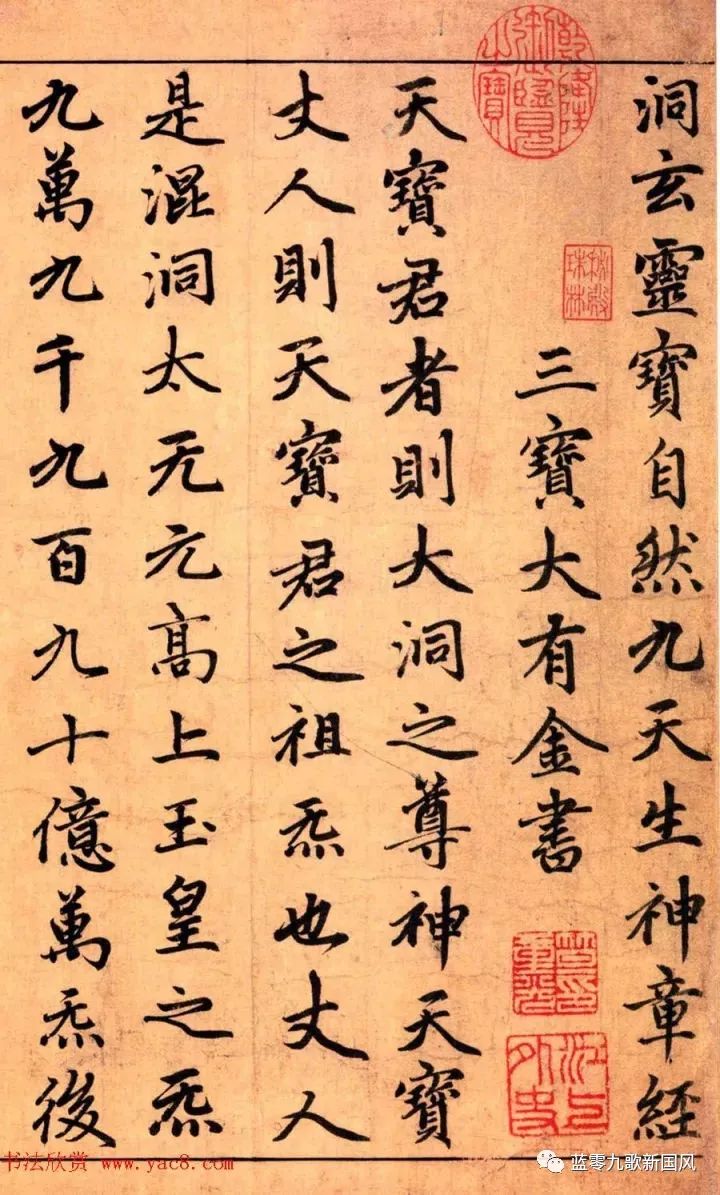 洞玄靈寶自然九天生神章經
三寶大有金書
天寶君者則大洞之尊神天寶
丈人則天寶君之祖炁也丈人
是混洞太无元高上玉皇之炁
九萬九千九百九十億萬炁後
乾隆御覽之寶
秘殿珠林
笪重光印
江上外史
书法欣赏 www.yac8.com
蓝零九歌新国风